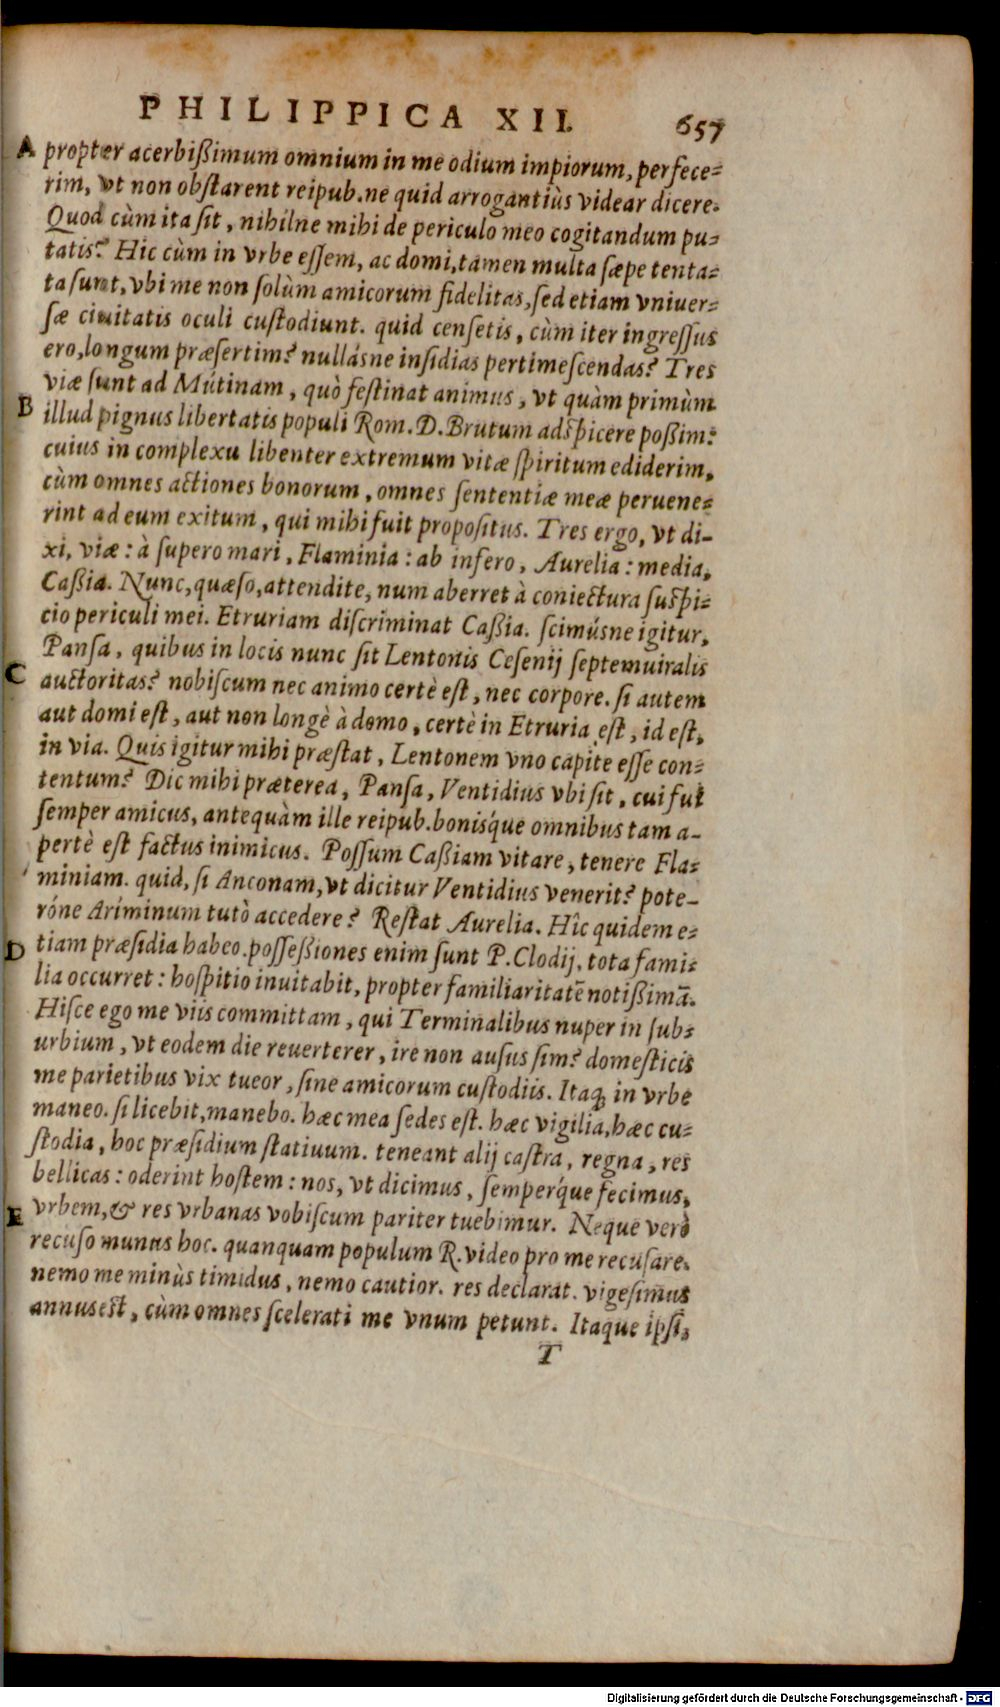 PHILIPPICA XII. 657
A propter acerbißimum omnium in me odium impiorum, perfece-
rim, vt non obſtarent reipub. ne quid arrogantiùs videar dicere.
Quod cùm ita ſit, nihilne mihi de periculo meo cogitandum pu-
tatis? Hic cùm in vrbe eſſem, ac domi, tamen multa ſæpe tenta-
ta ſunt, vbi me non ſolùm amicorum fidelitas, ſed etiam vniuer-
ſæ ciuitatis oculi cuſtodiunt. quid cenſetis, cùm iter ingreſſus
ero, longum præſertim? nullásne inſidias pertimeſcendas? Tres
viæ ſunt ad Mutinam, quò feſtinat animus, vt quàm primùm
B illud pignus libertatis populi Rom. D. Brutum adſpicere poßim:
cuius in complexu libenter extremum vitæ ſpiritum ediderim,
cùm omnes actiones bonorum, omnes ſententiæ meæ peruene-
rint ad eum exitum, qui mihi fuit propoſitus. Tres ergo, vt di-
xi, viæ: à ſupero mari, Flaminia: ab infero, Aurelia: media,
Caßia. Nunc, quæſo, attendite, num aberret à coniectura ſuſpi-
cio periculi mei. Etruriam diſcriminat Caßia. ſcimúsne igitur,
Panſa, quibus in locis nunc ſit Lentonis Ceſenij ſeptemuiralis
C auctoritas? nobiſcum nec animo certè eſt, nec corpore. ſi autem
aut domi eſt, aut non longè à domo, certè in Etruria eſt, id eſt,
in via. Quis igitur mihi præſtat, Lentonem vno capite eſſe con-
tentum? Dic mihi præterea, Panſa, Ventidius vbi ſit, cui fui
ſemper amicus, antequàm ille reipub. bonisq́ue omnibus tam a-
pertè eſt factus inimicus. Poſſum Caßiam vitare, tenere Fla-
miniam. quid, ſi Anconam, vt dicitur Ventidius venerit? pote-
róne Ariminum tutò accedere? Reſtat Aurelia. Hîc quidem e-
D tiam præſidia habeo. poſſeßiones enim ſunt P. Clodij, tota fami-
lia occurret: hoſpitio inuitabit, propter familiaritatē notißimā.
Hiſce ego me viis committam, qui Terminalibus nuper in ſub-
urbium, vt eodem die reuerterer, ire non auſus ſim? domeſticis
me parietibus vix tueor, ſine amicorum cuſtodiis. Itaq; in vrbe
maneo. ſi licebit, manebo. hæc mea ſedes eſt. hæc vigilia, hæc cu-
ſtodia, hoc præſidium ſtatiuum. teneant alij caſtra, regna, res
bellicas: oderint hoſtem: nos, vt dicimus, ſemperq́ue fecimus,
E vrbem, & res vrbanas vobiſcum pariter tuebimur. Neque verò
recuſo munus hoc. quanquam populum R. video pro me recuſare.
nemo me minùs timidus, nemo cautior. res declarat. vigeſimus
annus eſt, cùm omnes ſcelerati me vnum petunt. Itaque ipſi,
T
Digitalisierung gefördert durch die Deutsche Forschungsgemeinschaft - DFG